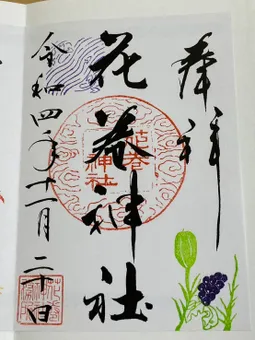 奉拝
花巻神社
花巻神社
令和四年十一月二十日